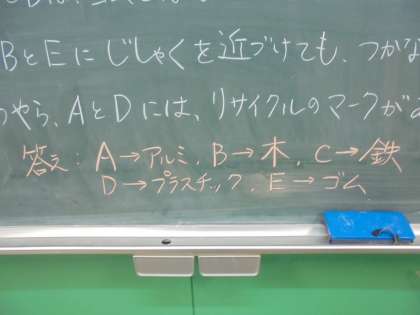 BとEにじしゃくを近づけても、つかな
やら、AとDには、リサイクルのマークが
答え：A→アルミ、B→木、C→鉄
D→プラスチック、E→ゴム